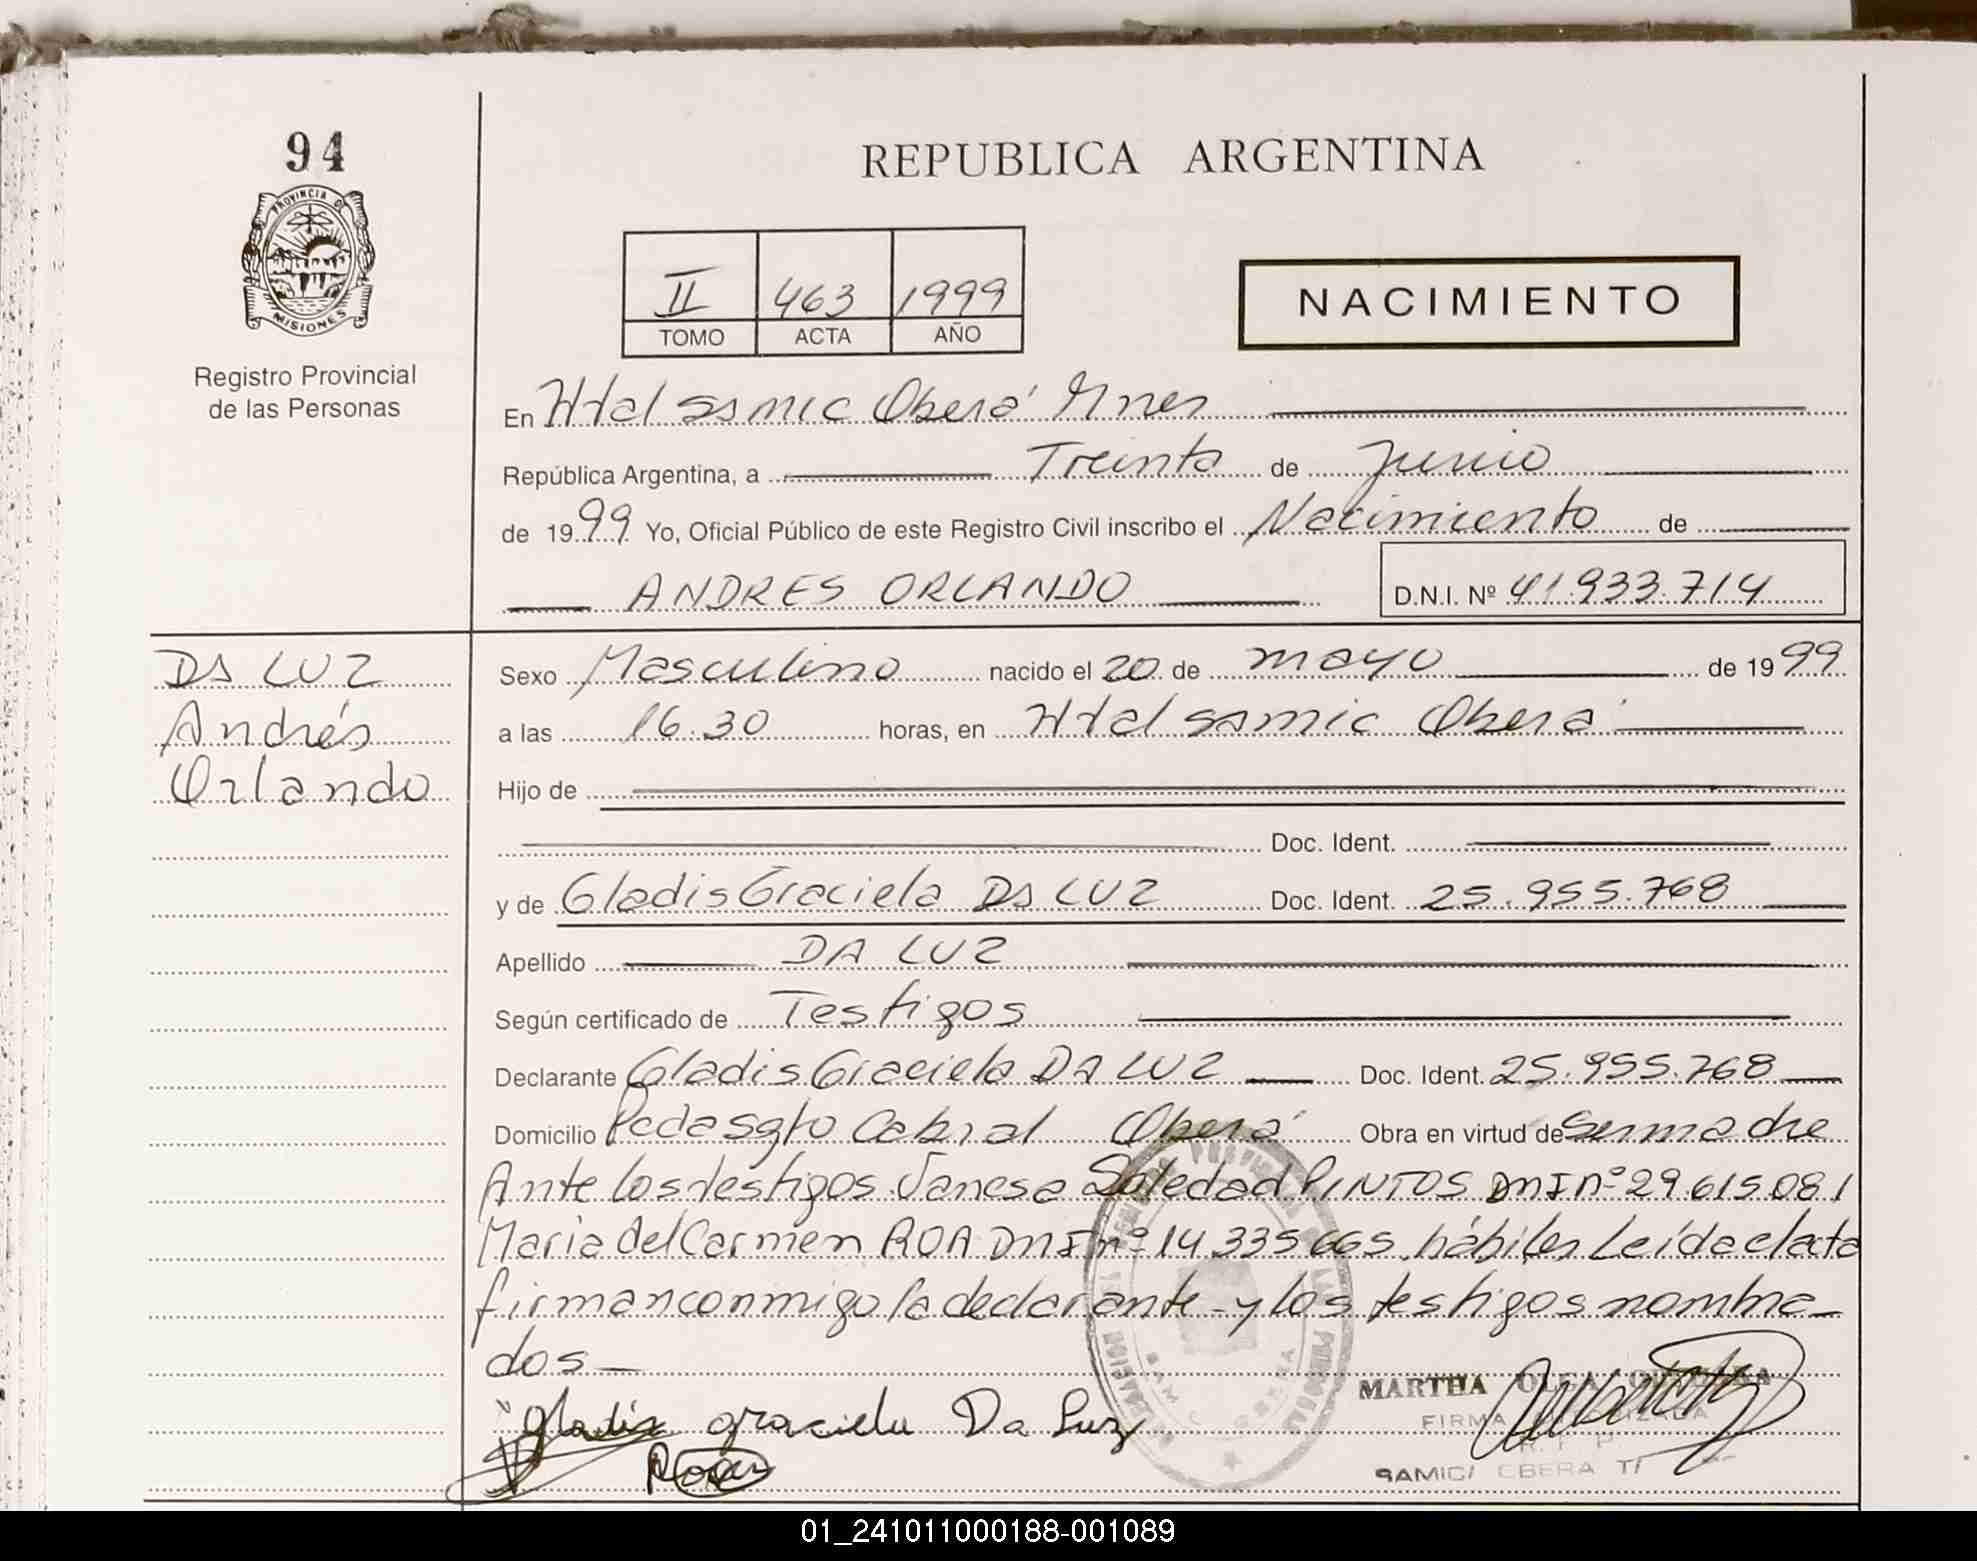 94
PROVINCIA DE
MISIONES
Registro Provincial
de las Personas
REPUBLICA ARGENTINA
II 463 1999
TOMO ACTA AÑO
NACIMIENTO
En Htal samic Oberá Mnes
República Argentina, a Treinta de Junio
de 1999 Yo, Oficial Público de este Registro Civil inscribo el Nacimiento de
ANDRES ORLANDO D.N.I. Nº 41.933.714
DA LUZ
Andrés
Orlando
Sexo Masculino nacido el 20 de mayo de 1999
a las 16.30 horas, en Htal samic Oberá
Hijo de
Doc. Ident.
y de Gladis Graciela DA LUZ Doc. Ident. 25.955.768
Apellido DA LUZ
Según certificado de Testigos
Declarante Gladis Graciela DA LUZ Doc. Ident. 25.955.768
Domicilio Pcda sgto Cabral Oberá Obra en virtud de ser madre
Ante los testigos Vanesa Soledad PINTOS DNI nº 29615081
Maria del Carmen ROA DNI nº 14.335665, hábiles Leída el acta
firman conmigo la declarante y los testigos nombra-
dos
Gladis Graciela Da Luz
Roa
MARTHA OLGA
FIRMA
R. P.
SAMIC OBERA
01_241011000188-001089